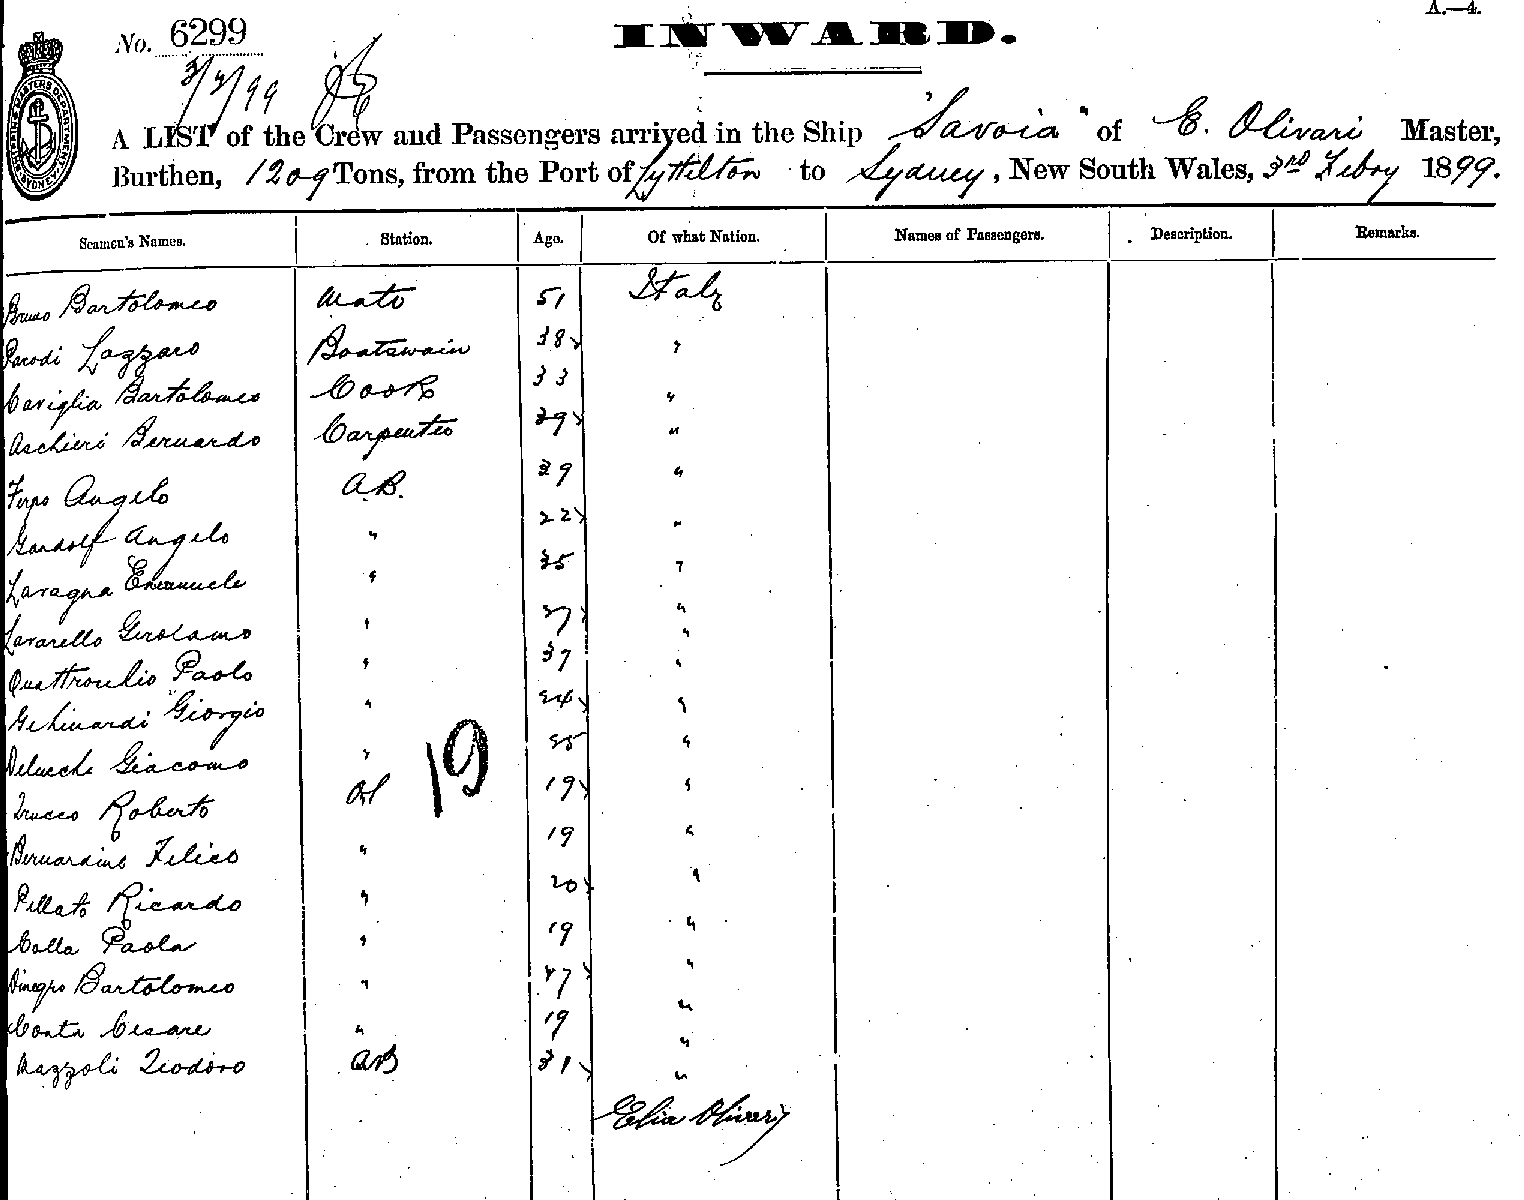 A.—4.
No. 6299
INWARD.
3/2/99
A LIST of the Crew and Passengers arrived in the Ship "Savoia" of E. Olivari Master,
Burthen, 1209 Tons, from the Port of Lyttelton to Sydney, New South Wales, 3rd Febry 1899.
Seamen's Names. Station. Age. Of what Nation. Names of Passengers. Description. Remarks.
Bruno Bartolomeo Mate 51 Italy
Parodi Lazzaro Boatswain 38 "
Caviglia Bartolomeo Cook 33 "
Aschieri Bernardo Carpenter 39 "
Angelo A.B. 39 "
Gandolf Angelo " 22 "
Lavagna Emanuele " 35 "
Lavarello Girolamo " 27 "
Paolo " 37 "
Giorgio " 24 "
Delucchi Giacomo " 25 "
19
Trucco Roberto OS 19 "
Bernardino Felice " 19 "
Pellato Ricardo " 20 "
Colla Paola " 19 "
Dinegro Bartolomeo " 17 "
Conta Cesare " 19 "
Mazzoli Teodoro AB 31 "
Elia Oliveri